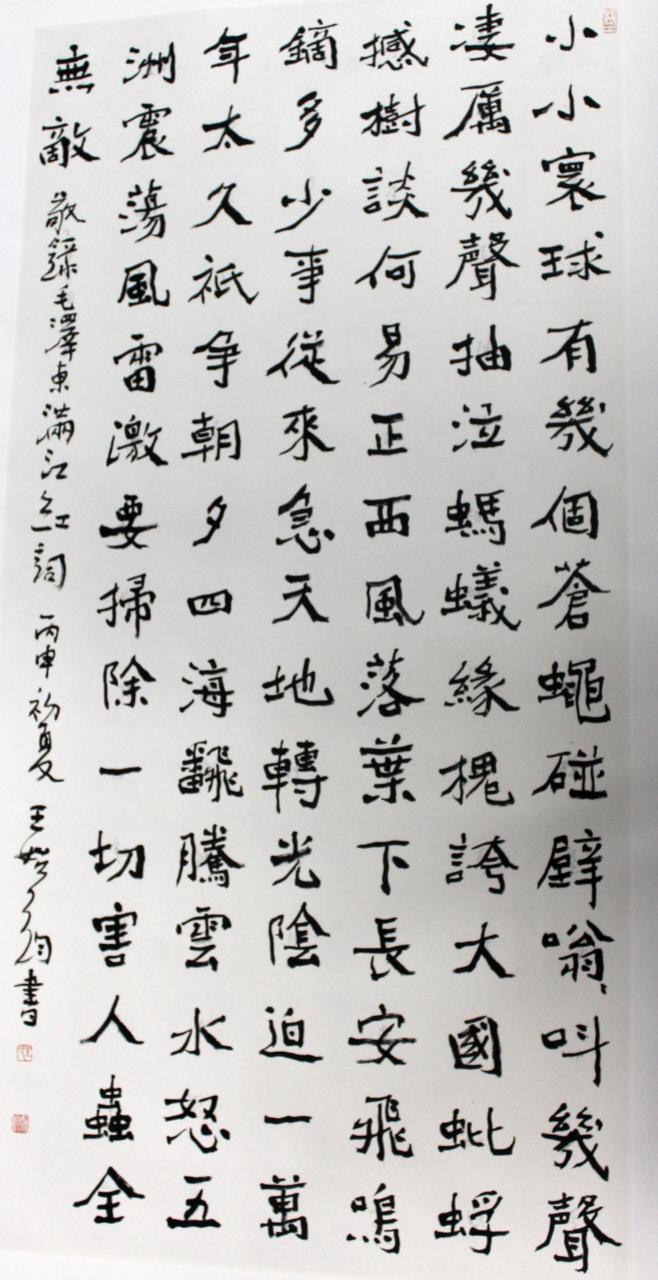 小小寰球有幾個蒼蠅碰壁嗡、叫幾聲
凄厲幾聲抽泣螞蟻緣槐誇大國蚍蜉
撼樹談何易正西風落葉下長安飛鳴
鏑多少事從來急天地轉光陰迫一萬
年太久祇争朝夕四海飜騰雲水怒五
洲震蕩風雷激要掃除一切害人蟲全
無敵 敬錄毛澤東滿江紅詞 丙申初夏 王 書